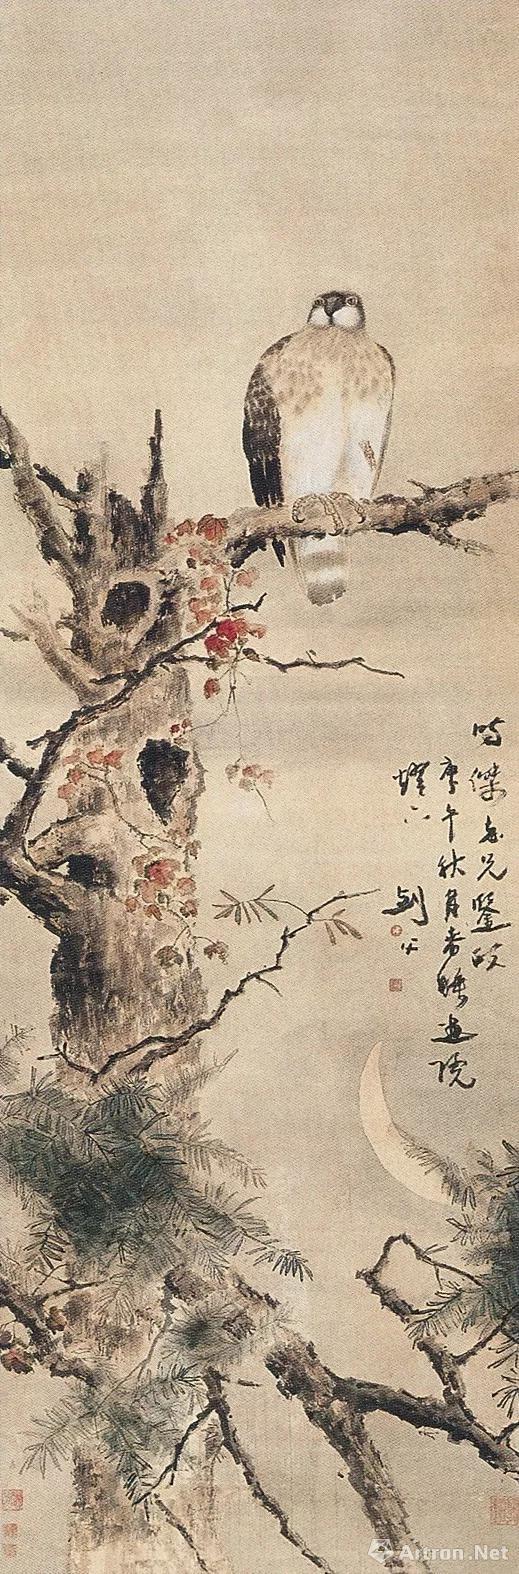 時傑老兄鑒政
庚午秋月 春睡畫院
燈下 劍父
Artron.Net